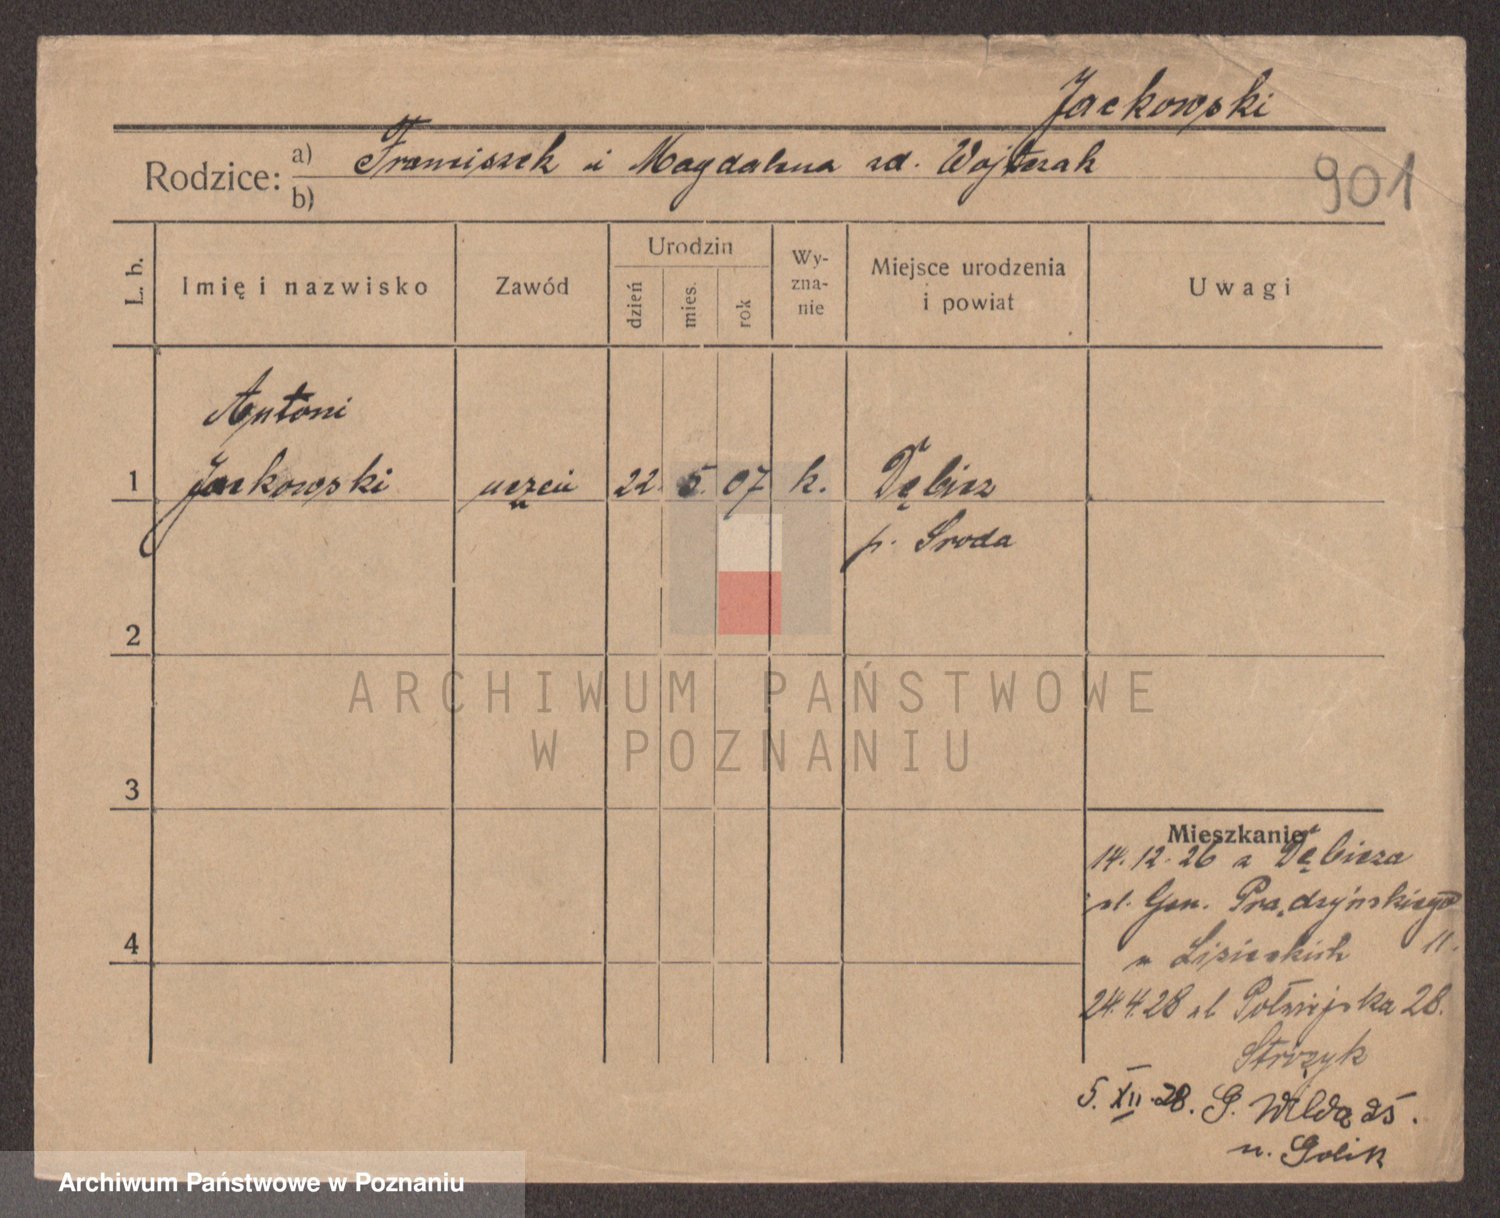 Jackowski
Rodzice: a) Franciszek i Magdalena zd. Wojtczak
b)
901
L. b.
Imię i nazwisko
Zawód
Urodzin
dzień
mies.
rok
Wy-
zna-
nie
Miejsce urodzenia
i powiat
Uwagi
Antoni
1 Jackowski uczeń 22. 5. 07 k. Dębicz
p. Sroda
2
ARCHIWUM PAŃSTWOWE
W POZNANIU
3
4
Mieszkanie
14. 12. 26 z Dębicza
ul. Gen. Prądzyńskiego
11.
24.4.28 ul Półwiejska 28.
Strózyk
5. XII. 28. G. Wilda 25.
u. Golik
Archiwum Państwowe w Poznaniu